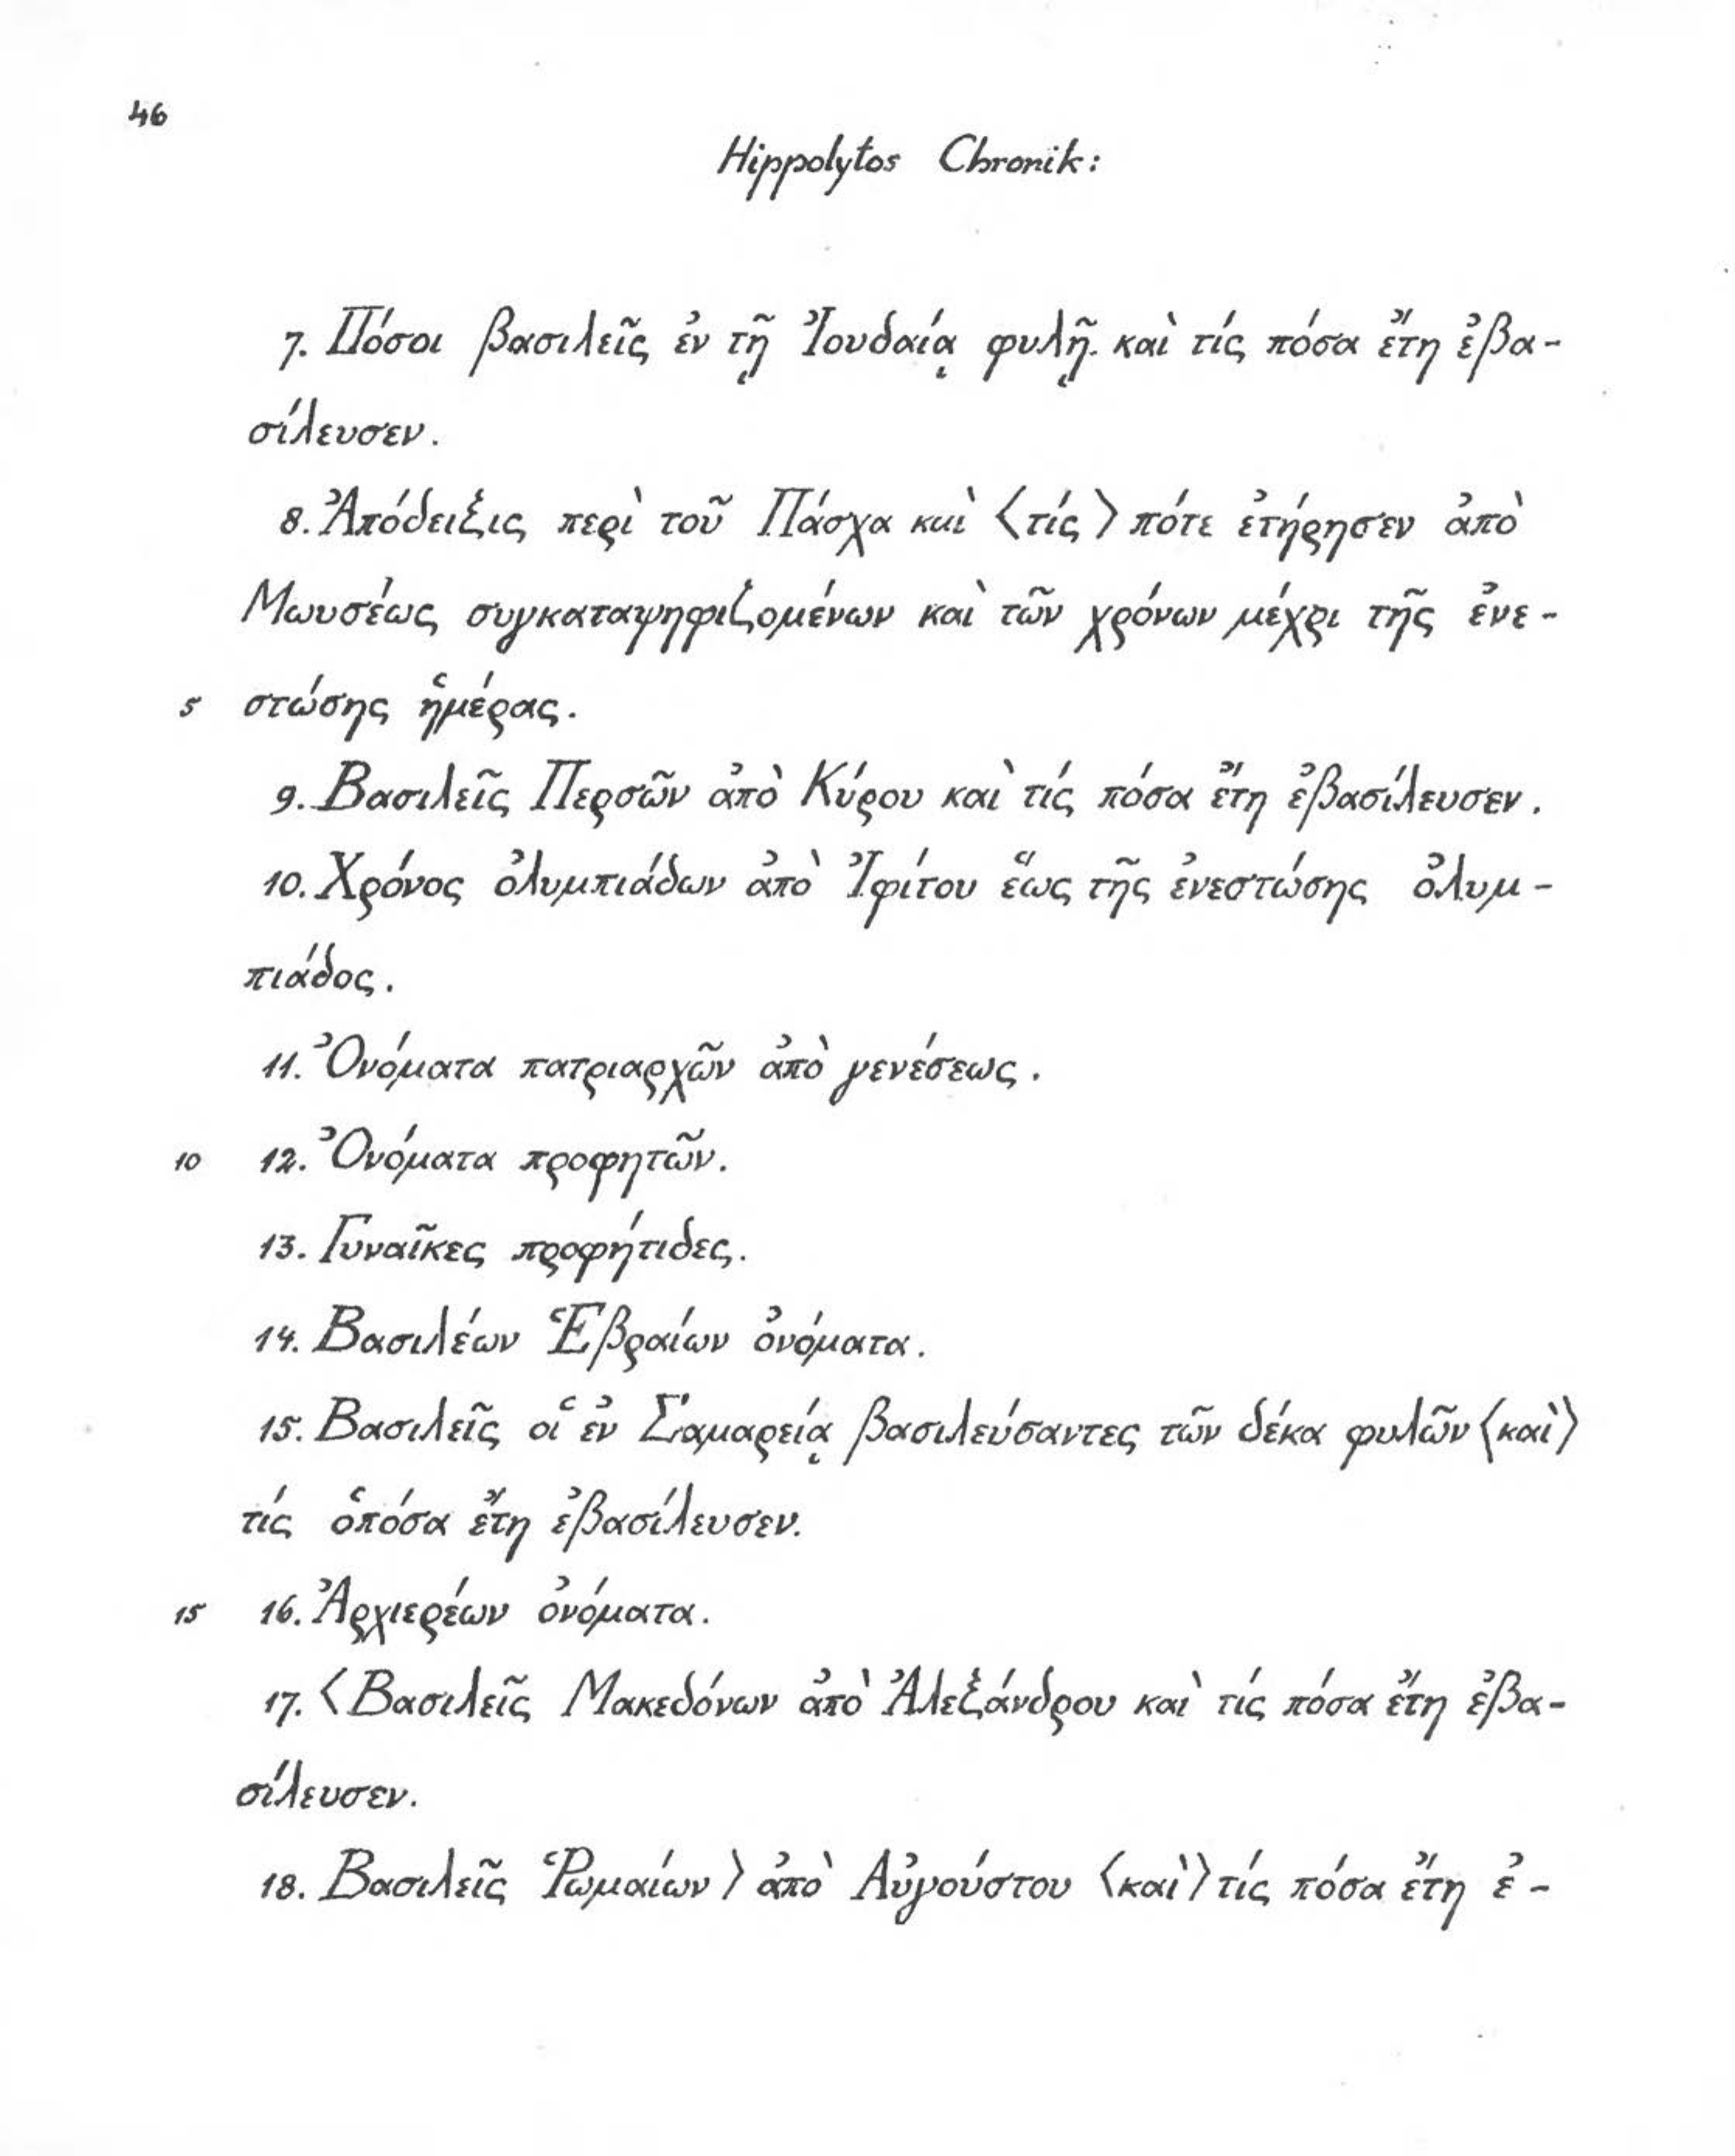 46
Hippolytos Chronik:
7. Πόσοι βασιλεῖς ἐν τῇ Ἰουδαίᾳ φυλῇ. καὶ τίς πόσα ἔτη ἐβα-
σίλευσεν.
8. Ἀπόδειξις περὶ τοῦ Πάσχα καὶ ⟨τίς⟩ πότε ἐτήρησεν ἀπὸ
Μωυσέως συγκαταψηφιζομένων καὶ τῶν χρόνων μέχρι τῆς ἐνε-
5 στώσης ἡμέρας.
9. Βασιλεῖς Περσῶν ἀπὸ Κύρου καὶ τίς πόσα ἔτη ἐβασίλευσεν.
10. Χρόνος ὀλυμπιάδων ἀπὸ Ἰφίτου ἕως τῆς ἐνεστώσης ὀλυμ-
πιάδος.
11. Ὀνόματα πατριαρχῶν ἀπὸ γενέσεως.
10 12. Ὀνόματα προφητῶν.
13. Γυναῖκες προφήτιδες.
14. Βασιλέων Ἑβραίων ὀνόματα.
15. Βασιλεῖς οἱ ἐν Σαμαρείᾳ βασιλεύσαντες τῶν δέκα φυλῶν ⟨καὶ⟩
τίς ὁπόσα ἔτη ἐβασίλευσεν.
15 16. Ἀρχιερέων ὀνόματα.
17. ⟨Βασιλεῖς Μακεδόνων ἀπὸ Ἀλεξάνδρου καὶ τίς πόσα ἔτη ἐβα-
σίλευσεν.
18. Βασιλεῖς Ῥωμαίων⟩ ἀπὸ Αὐγούστου ⟨καὶ⟩ τίς πόσα ἔτη ἐ-